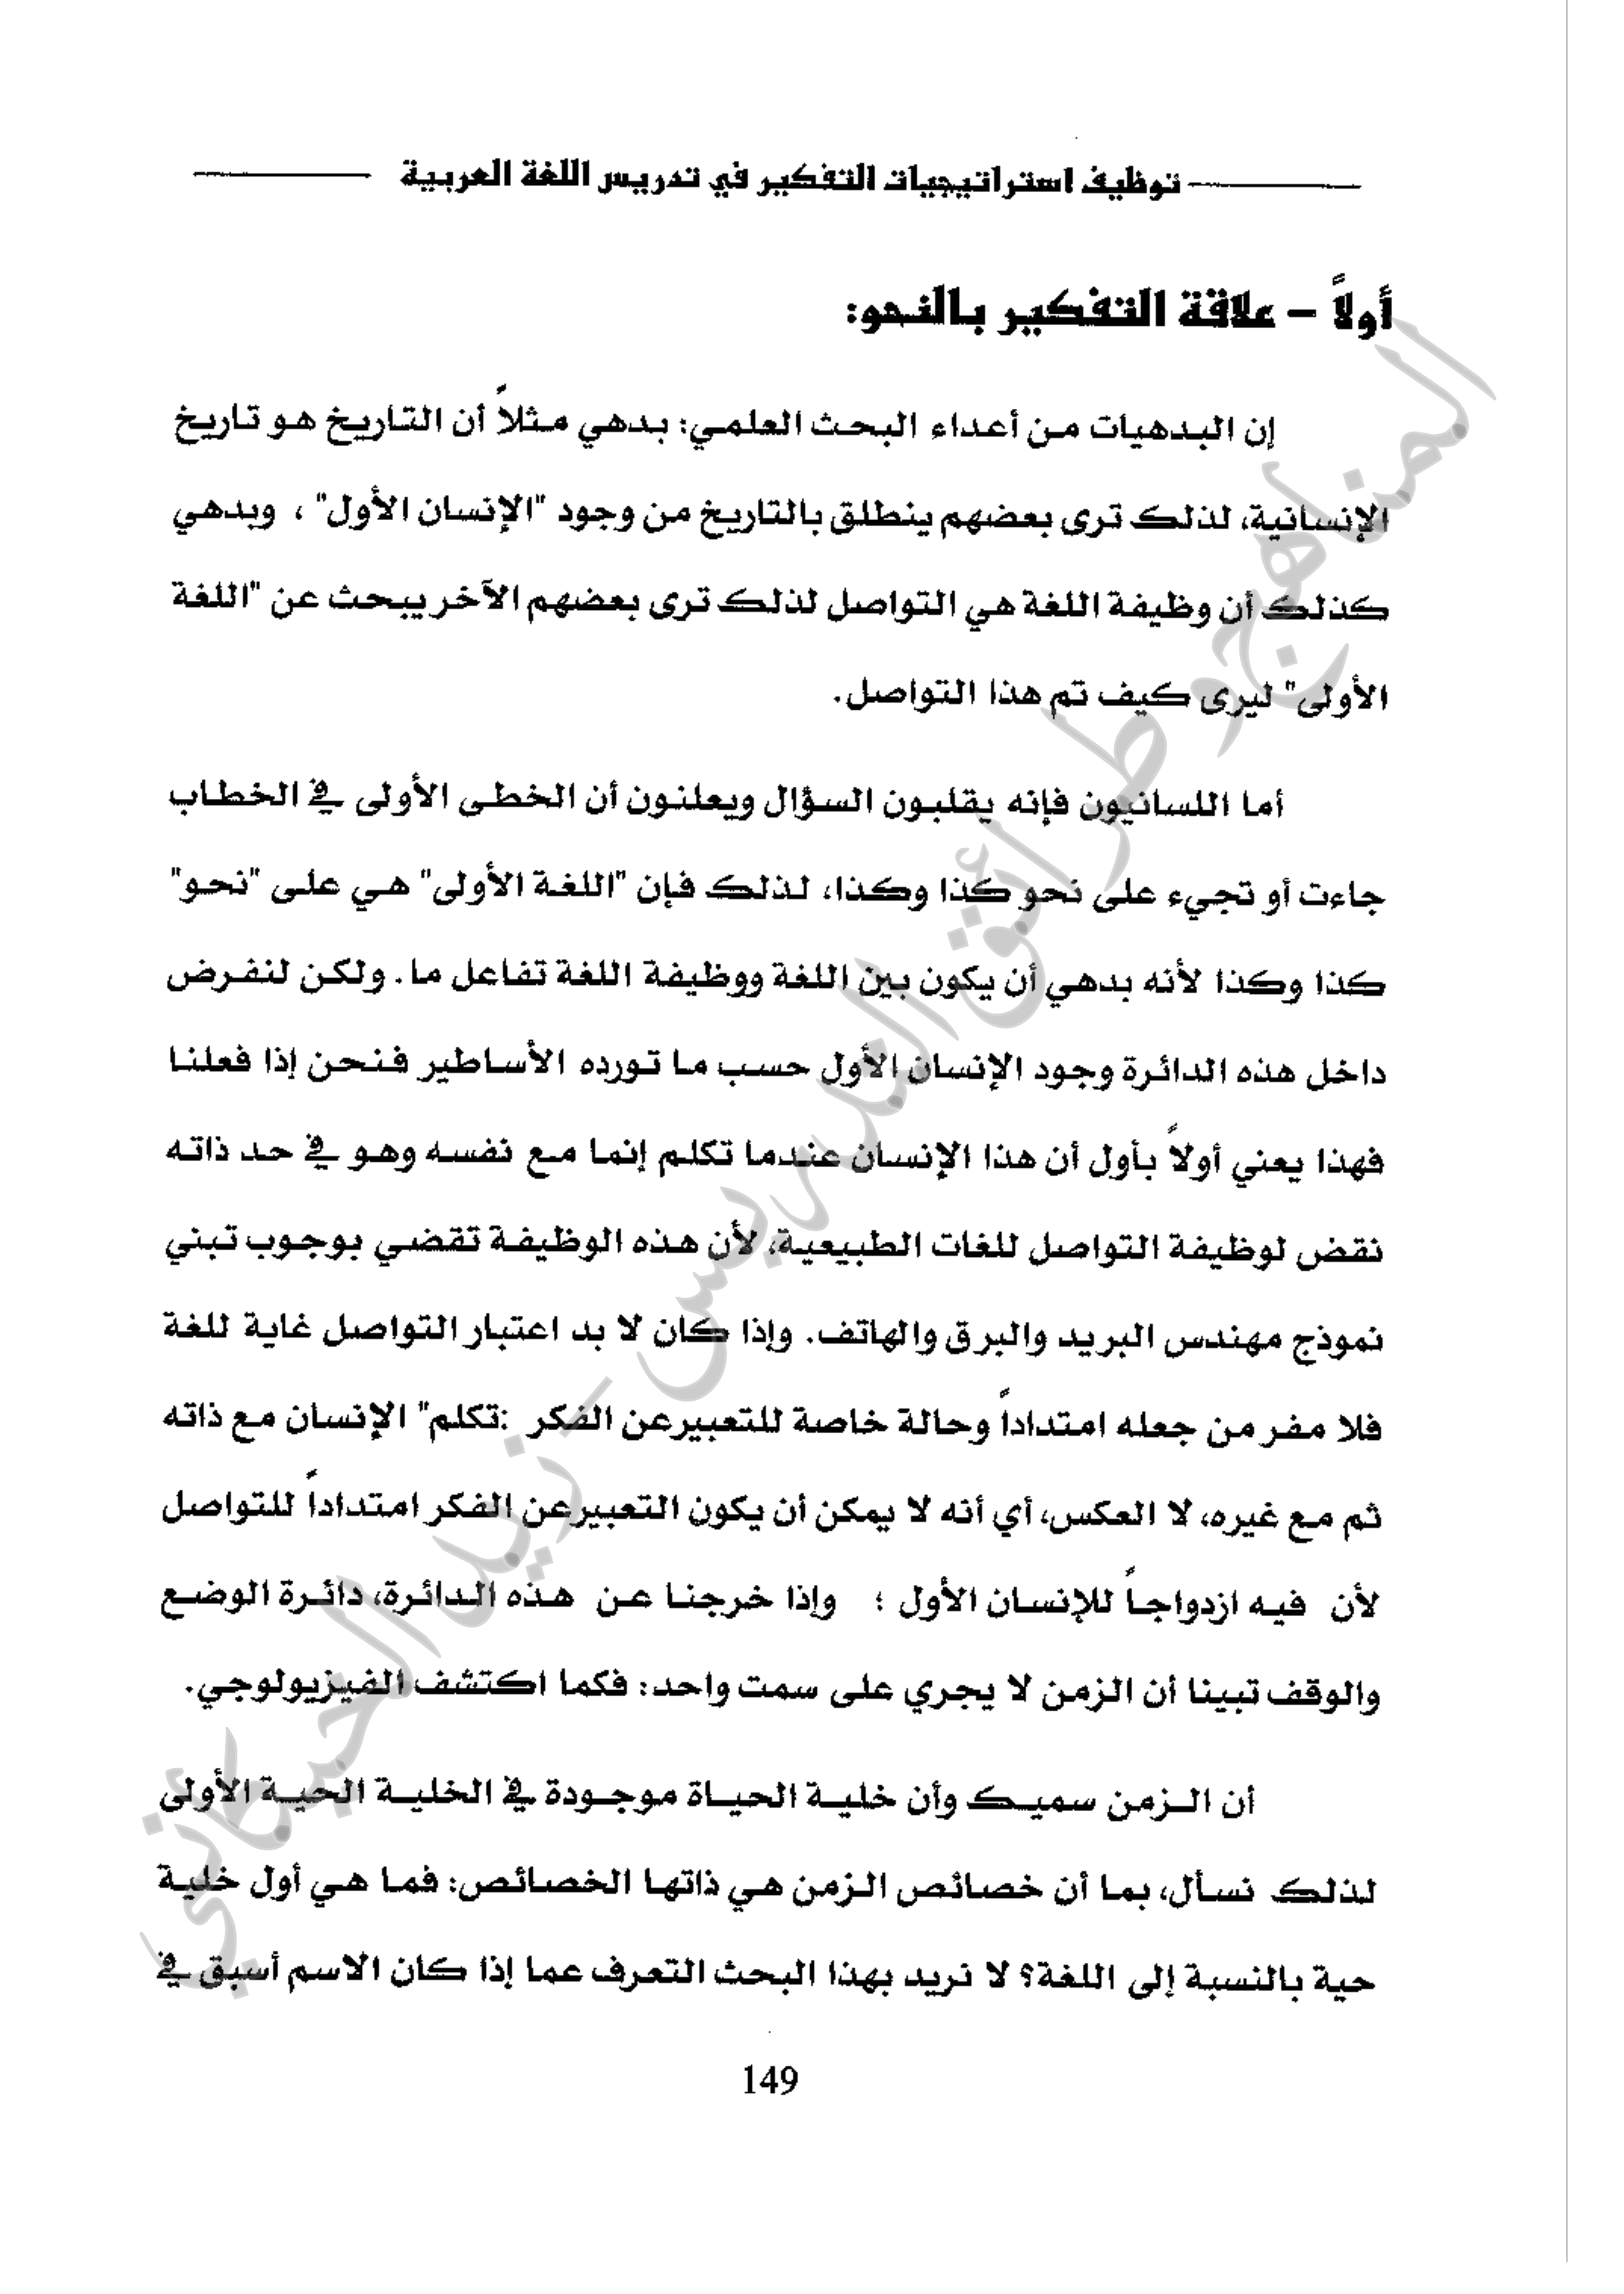 توظيف استراتيجيات التفكير في تدريس اللغة العربية
أولاً – علاقة التفكير بالنحو:
إن البدهيات من أعداء البحث العلمي: بدهي مثلاً أن التاريخ هو تاريخ
الإنسانية، لذلك ترى بعضهم ينطلق بالتاريخ من وجود "الإنسان الأول" ، وبدهي
كذلك أن وظيفة اللغة هي التواصل لذلك ترى بعضهم الآخر يبحث عن "اللغة
الأولى" ليرى كيف تم هذا التواصل.
أما اللسانيون فإنه يقلبون السؤال ويعلنون أن الخطى الأولى في الخطاب
جاءت أو تجيء على نحو كذا وكذا، لذلك فإن "اللغة الأولى" هي على "نحو"
كذا وكذا لأنه بدهي أن يكون بين اللغة ووظيفة اللغة تفاعل ما. ولكن لنفرض
داخل هذه الدائرة وجود الإنسان الأول حسب ما تورده الأساطير فنحن إذا فعلنا
فهذا يعني أولاً بأول أن هذا الإنسان عندما تكلم إنما مع نفسه وهو في حد ذاته
نقض لوظيفة التواصل للغات الطبيعية، لأن هذه الوظيفة تقضي بوجوب تبني
نموذج مهندس البريد والبرق والهاتف. وإذا كان لا بد اعتبار التواصل غاية للغة
فلا مفر من جعله امتداداً وحالة خاصة للتعبير عن الفكر :تكلم" الإنسان مع ذاته
ثم مع غيره، لا العكس، أي أنه لا يمكن أن يكون التعبير عن الفكر امتداداً للتواصل
لأن فيه ازدواجاً للإنسان الأول ؛ وإذا خرجنا عن هذه الدائرة، دائرة الوضع
والوقف تبينا أن الزمن لا يجري على سمت واحد: فكما اكتشف الفيزيولوجي.
أن الزمن سميك وأن خلية الحياة موجودة في الخلية الحية الأولى
لذلك نسأل، بما أن خصائص الزمن هي ذاتها الخصائص: فما هي أول خلية
حية بالنسبة إلى اللغة؟ لا نريد بهذا البحث التعرف عما إذا كان الاسم أسبق في
149
المناهج وطرائق التدريس - زيد الخيكاني